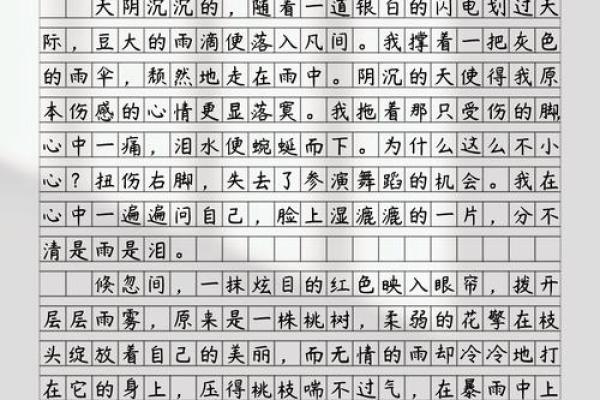 天阴沉沉的，随着一道银白的闪电划过天
际，豆大的雨滴便落入凡间。我撑着一把灰色
的雨伞，颓然地走在雨中。阴沉的天使得我原
本伤感的心情更显落寞。我拖着那只受伤的脚，
心中一痛，泪水便蜿蜒而下。为什么这么不小
心？扭伤右脚，失去了参演舞蹈的机会。我在
心中一遍遍问自己，脸上湿漉漉的一片，分不
清是雨是泪。
倏忽间，一抹炫目的红色映入眼帘，拨开
层层雨雾，原来是一株桃树，柔弱的花擎在枝
头绽放着自己的美丽，而无情的雨却冷冷地打
在它的身上，压得桃枝喘不过气，在暴雨中上